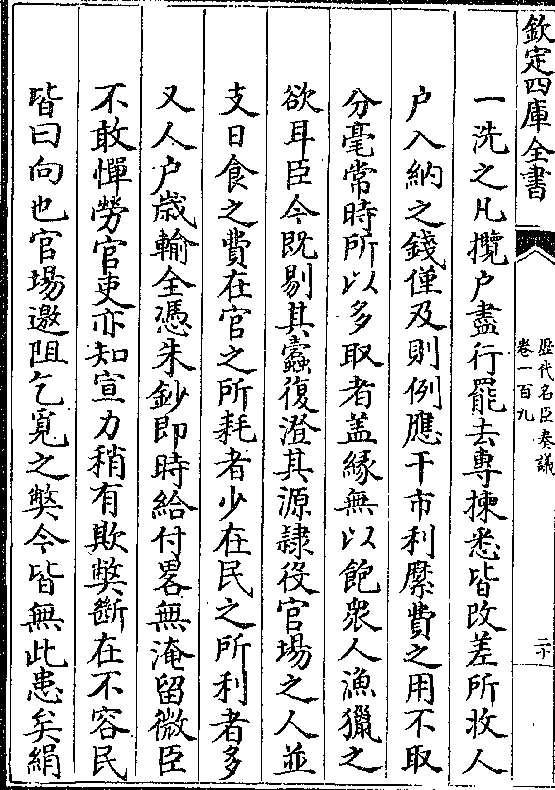 欽定四庫全書
歷代名臣奏議
卷一百九
二十
一洗之凡攬户盡行罷去専揀悉皆改差所收人
户入納之錢僅及則例應干市利縻費之用不取
分毫常時所以多取者盖縁無以飽衆人漁獵之
欲耳臣今既剔其蠹復澄其源隷役官場之人並
支日食之費在官之所耗者少在民之所利者多
又人户歳輸全憑朱鈔即時給付畧無淹留微臣
不敢憚勞官吏亦知宣力稍有欺弊斷在不容民
皆曰向也官場邀阻乞覓之弊今皆無此患矣絹